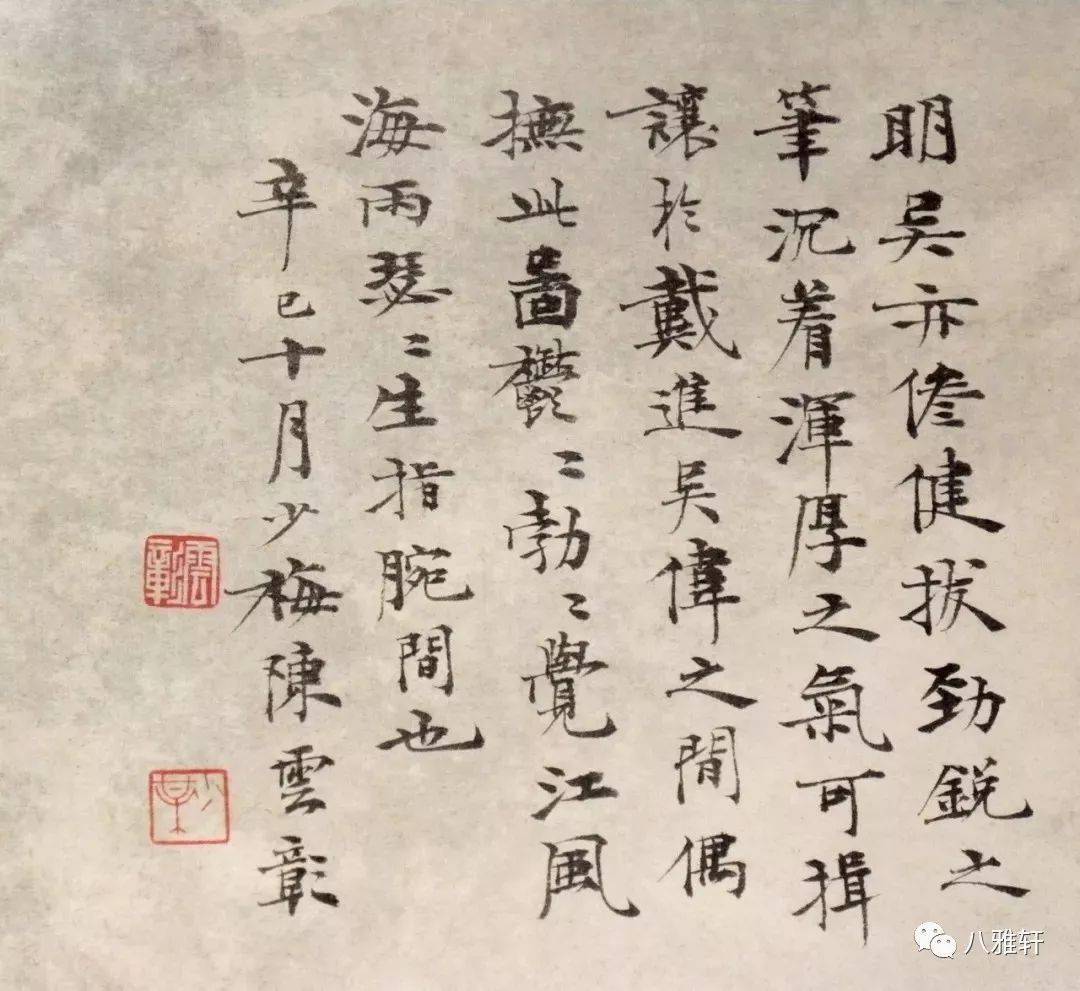 明吳亦僊健拔勁銳之
筆沉着渾厚之氣可揖
讓於戴進吳偉之間偶
撫此啚鬱〻勃〻覺江風
海雨瑟〻生指腕間也
辛巳十月少梅陳雲彰
八雅轩